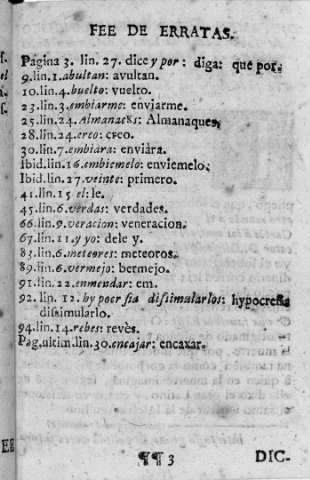 FEE DE ERRATAS.
Pagina 3. lin. 27. dice y por: diga: que por.
9.lin.1.abultan: avultan.
10.lin.4.buelto: vuelto.
23.lin.3.embiarme: enviarme.
25.lin.24.Almanacks: Almanaques.
28.lin.24.creo: creo.
30.lin.7.embiara: enviàra.
Ibid.lin.16.embiemelo: enviemelo.
Ibid.lin.27.veinte: primero.
41.lin.15 el: le.
45.lin.6.verdas: verdades.
66.lin.9.veracion: veneracion.
67.lin.11.y yo: dele y.
83.lin.6.meteeres: meteoros.
89.lin.6.vermejo: bermejo.
91.lin.22.enmendar: em.
92. lin. 12. hy poer sia dissimularlos: hypocresia
dissimularlo.
94.lin.14.rebes: revès.
Pag.ultim.lin.30.encajar: encaxar.
¶¶ 3
DIC-